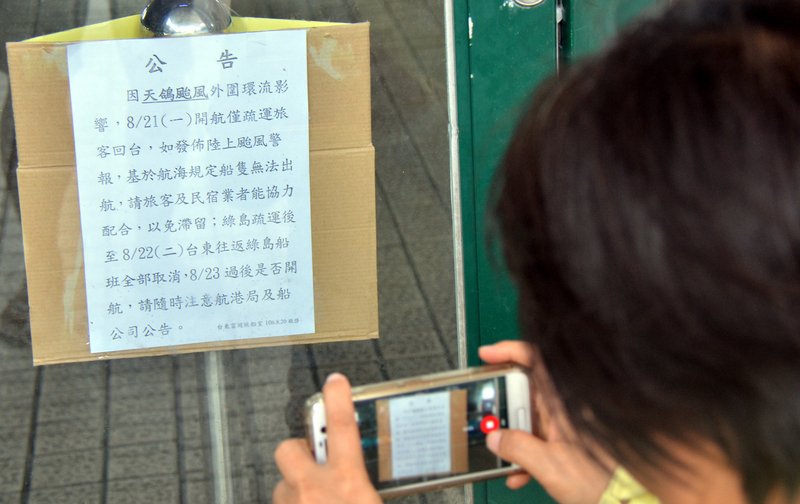 公告
因天鴿颱風外圍環流影
響，8/21(一)開航僅疏運旅
客回台，如發佈陸上颱風警
報，基於航海規定船隻無法出
航，請旅客及民宿業者能協力
配合，以免滯留；綠島疏運後
至 8/22(二)台東往返綠島船
班全部取消，8/23 過後是否開
航，請隨時注意航港局及船
公司公告。
106.8.20